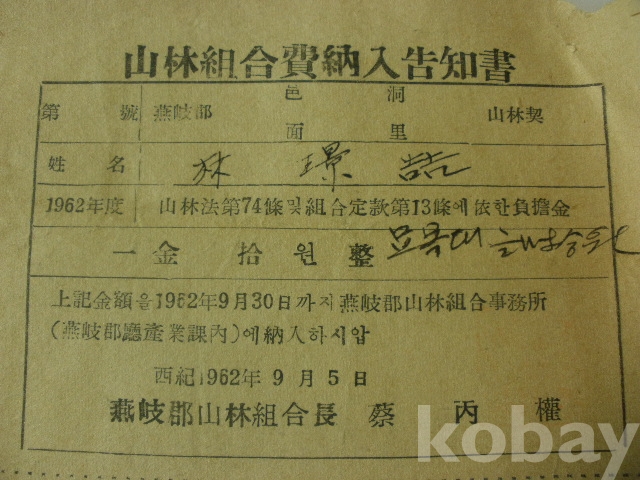 山林組合費納入告知書
第 號 燕岐郡 邑面 洞里 山林契
姓名 林 璟 喆
1962年度 山林法第74條및組合定款第13條에依한負擔金
一金 拾원整 묘목대
上記金額을1962年9月30日까지燕岐郡山林組合事務所
(燕岐郡廳産業課內)에納入하시압
西紀1962年9月5日
燕岐郡山林組合長 蔡丙權
kobay